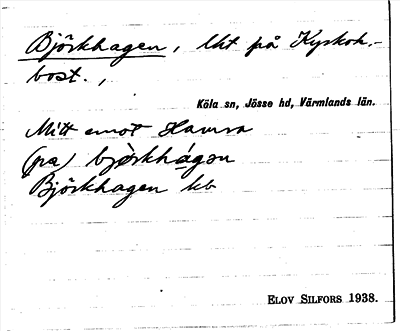 Björkhagen, lht på Kyrkoh.-
bost.,
Köla sn, Jösse hd, Värmlands län.
Mitt emot Hamra
(pa) bjö̀rkhágən
Björkhagen kb
ELOV SILFORS 1938.